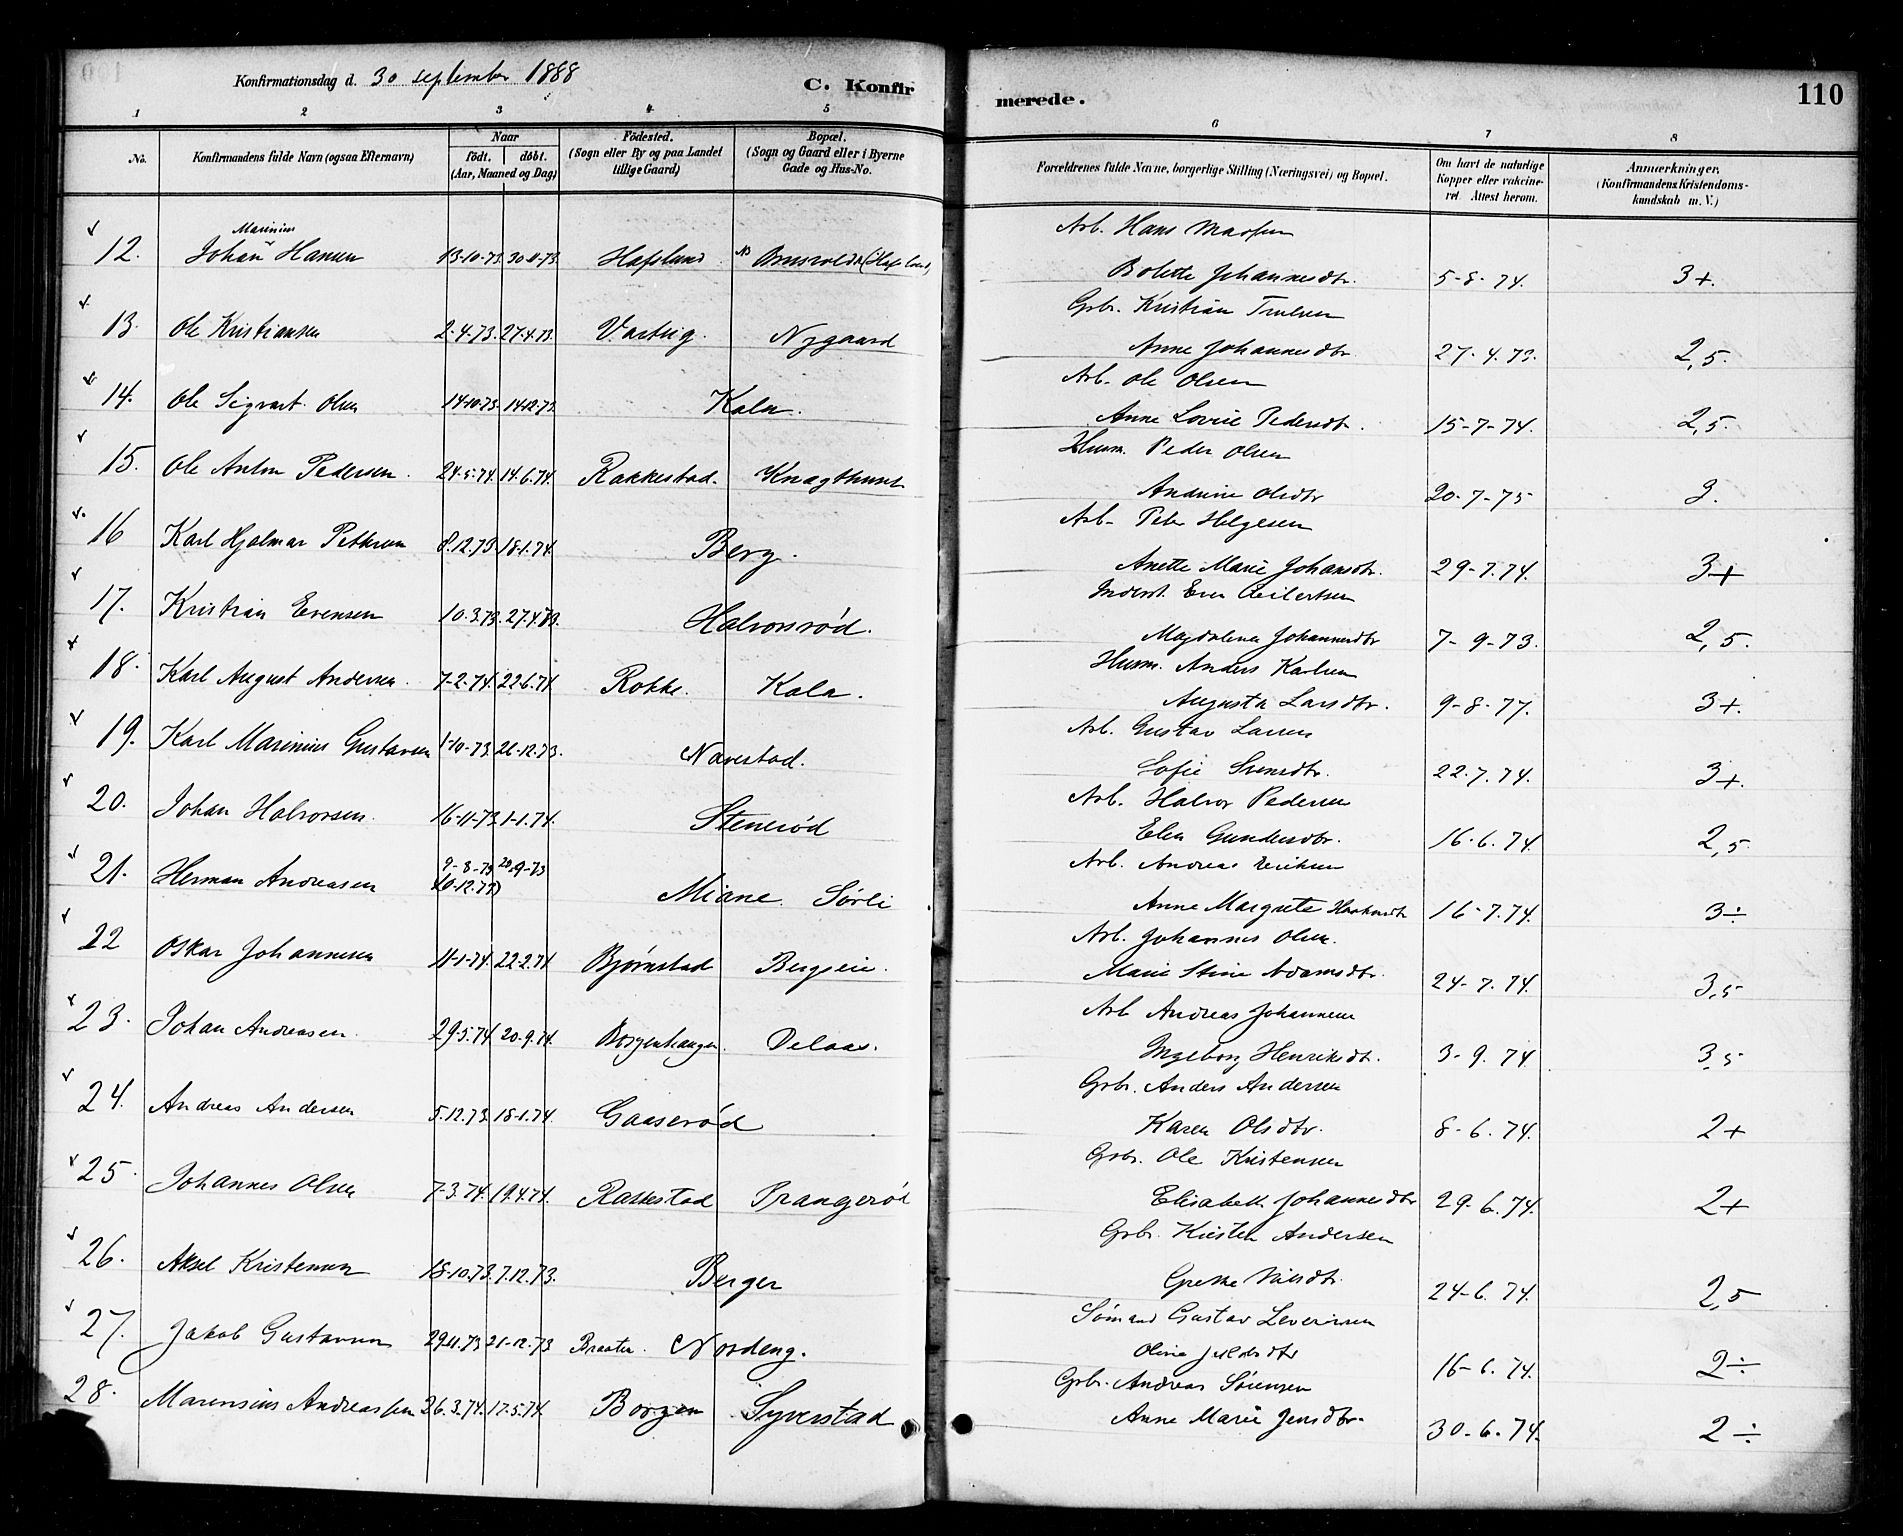 Konfirmationsdag d. 30 september 1888
C. Konfir
merede.
110
1 2 3 4 5 6 7 8
No. Konfirmandens fulde Navn (ogsaa Efternavn) Naar födt. döbt. (Aar, Maaned og Dag) Födested. (Sogn eller By og paa Landet tillige Gaard) Bopæl. (Sogn og Gaard eller i Byerne Gade og Hus-No. Forældrenes fulde Navne, borgerlige Stilling (Næringsvei) og Bopæl. Om havt de naturlige Kopper eller vakcineret. Attest herom. Anmærkninger. (Konfirmandens Kristendomskundskab m. V.)
Marinius
12. Johan Hansen 13-10-73. 30-11-73 Hafslund Arb. Hans
Bolette Johannesdtr. 5-8-74. 3+.
13. Ole Kristiansen 2-4-73. 27-4-73. Varteig. Nygaard Gbr. Kristian Trulsen
Anne Johannesdtr. 27-4.73. 2,5.
14. Ole Sigvart Olsen 14-10-73. 14-12-73. Kala. Arb. Ole Olsen
Anne Lovise Pedersdtr. 15-7-74. 2,5.
15. Ole Anton Pedersen. 24-5-74. 14.6.74. Rakkestad. Husm. Peder Olsen
Andrine Olsdtr 20-7-75 3.
16 Karl Hjalmar Pettersen 8.12.73. 18-1.74. Berg. Arb. Peter Helgesen
Anette Marie Johansdtr. 29-7.74. 3+
17. Kristian Evensen 10.3.73. 27.4.73. Halvorsrød. Inderst. Even Eilertsen
Magdalena Johannesdtr 7-9-73. 2,5.
18. Karl August Andersen. 7-2-74. 22.6.74 Rokke. Kala. Husm. Anders Karlsen
Augusta Larsdtr. 9-8-77. 3+.
19. Karl Marinius Gustavsen 1-10-73. 26-12.73. Navestad. Arb. Gustav Larsen
Sofie Svensdtr. 22.7.74. 3+.
20. Johan Halvorsen. 16-11-73. 1-1.74. Stenerød Arb. Halvor Pedersen
Elen Gundersdtr. 16.6.74. 2,5
21. Herman Andreasen 9-8-73 20-9-73 Miane. Sørli Arb. Andreas
Anne Margrete 16-7.74. 3÷
22 Oskar Johannesen 11-1-74. 22-2.74 Bjørnstad Bergseie. Arb. Johannes Olsen.
Marie Stine Adamsdtr. 24-7.74. 3,5
23. Johan Andreasen. 29.5.74. 20-9.74. Borgenhaugen. Delaas. Arb Andreas Johannesen
Ingeborg Henriksdtr. 3-9.74 3,5
24. Andreas Andersen 5.12.73. 18-1.74. Gaaserød Gbr. Anders Andersen
Karen Olsdtr. 8-6.74. 2+
25. Johannes Olsen 7-3.74. 19.4.74. Rakkestad Prangerød Gbr. Ole Kristensen
Elisabeth Johannesdtr 29.6.74. 2+
26. Aksel Kristensen 18-10.73. 7.12.73. Berger Gbr. Kristen Andersen
Grethe Nilsdtr. 24-6.74. 2,5
27. Jakob Gustavsen 29.11.73 21-12.73 Braaten. Nordeng. Sømand Gustav Severinsen
Oline 16-6.74. 2÷
28. Marensius Andreassen 26.3.74. 17.5.74 Borgen Syverstad Gbr. Andreas Sørensen
Anne Marie Jensdtr. 30-6.74. 2÷